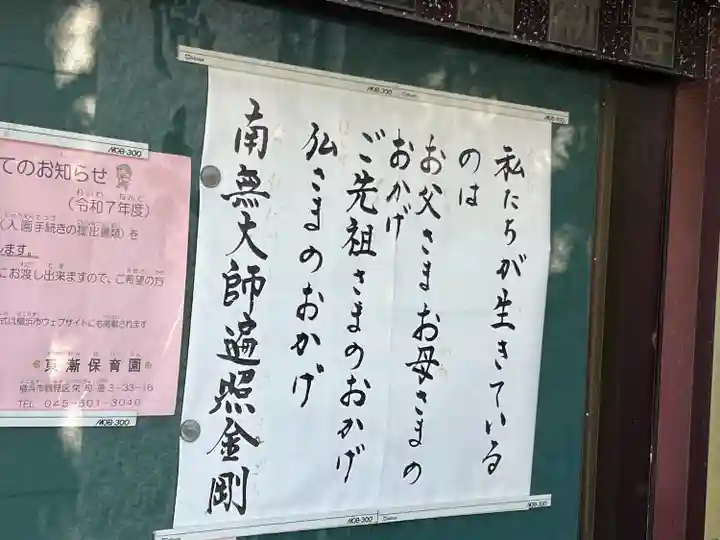 私たちが生きている
のは
お父さま お母さまの
おかげ
ご先祖さまのおかげ
仏さまのおかげ
南無大師遍照金剛
てのお知らせ
(令和7年度)
(入園手続きの提出書類)を
します。
にお渡し出来ますので、ご希望の方
式は横浜市ウェブサイトにも掲載されます
東漸保育園
横浜市鶴見区栄町通3-33-16
TEL 045-501-3040
MOB-300
MOB-300
MOB-300
MOB-300